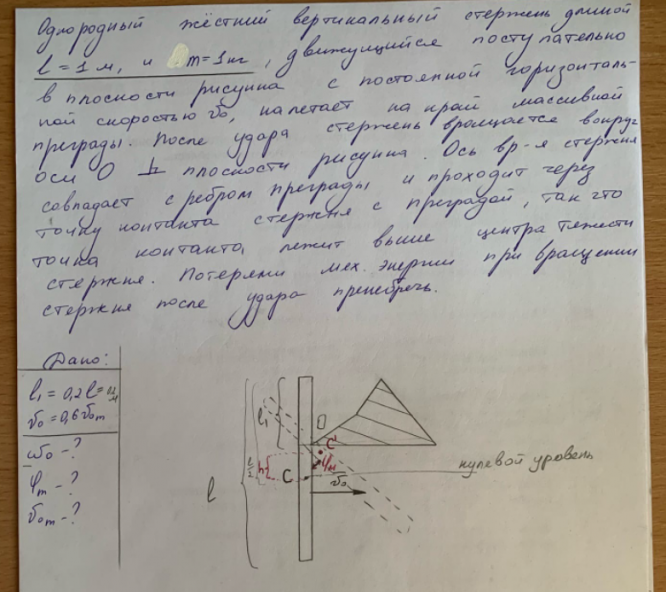 Однородный жёсткий вертикальный стержень длиной
l = 1 м, и m = 1 кг, движущийся поступательно
в плоскости рисунка с постоянной горизонталь-
ной скоростью v₀, налетает на край массивной
преграды. После удара стержень вращается вокруг
оси O ⊥ плоскости рисунка. Ось вр-я стержня
совпадает с ребром преграды и проходит через
точку контакта стержня с преградой, так что
точка контакта лежит выше центра тяжести
стержня. Потерями мех. энергии при вращении
стержня после удара пренебречь.
Дано:
l₁ = 0,2 l = 0,2 м
v₀ = 0,6 v₀ₘ
ω₀ - ?
φₘ - ?
v₀ₘ - ?
l
l/2
h
l₁
O
C'
φₘ
C
v₀
нулевой уровень